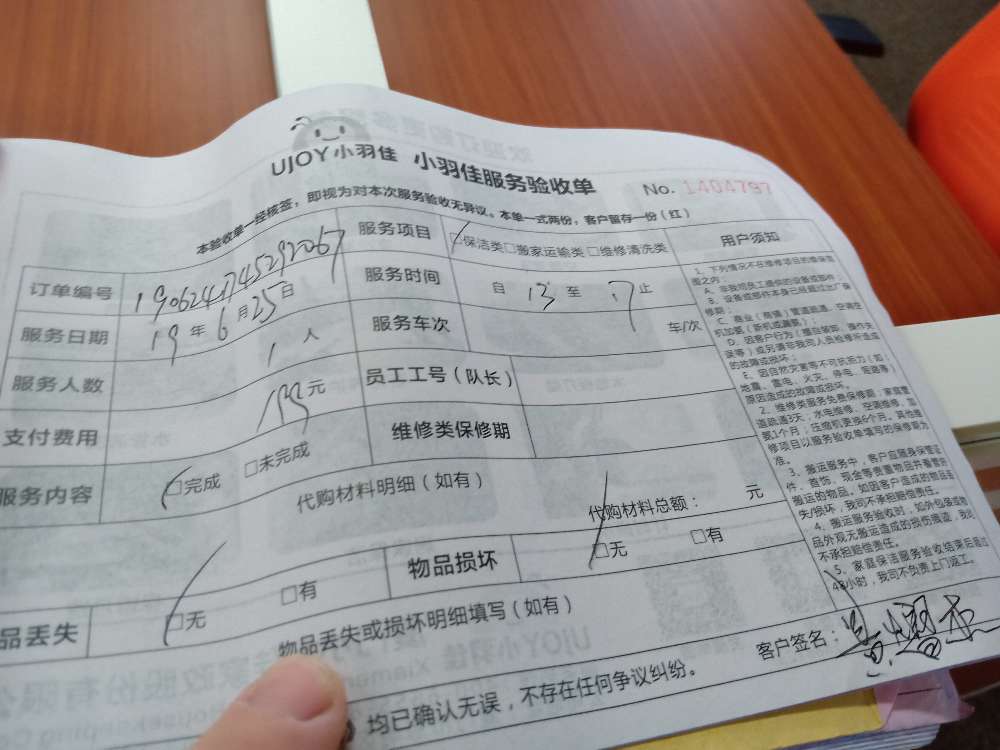 UJOY小羽佳 小羽佳服务验收单
No. 1404797
本验收单一经核签，即视为对本次服务验收无异议。本单一式两份，客户暂存一份（红）
订单编号
服务项目 □保洁类□搬家运输类 □维修清洗类
服务日期 19年6月25日
服务时间 自 13 至 17 止
服务人数 1 人
服务车次 车/次
支付费用 元
员工工号（队长）
维修类保修期
服务内容 □完成 □未完成
代购材料明细（如有）
代购材料总额： 元
品丢失 □无 □有
物品损坏 □无 □有
物品丢失或损坏明细填写（如有）
均已确认无误，不存在任何争议纠纷。
客户签名：
用户须知
1、下列情况不在维修项目的维保范
围之内：
A、非我司员工提供的设备或部件；
B、设备或部件本身已经超过出厂保
修期；
C、商业（商铺）管道疏通、空调空
机加氨（新机或漏氨）；
D、因客户行为（擅自装卸、操作失
误等）或另请非我司人员检修所造成
的故障或损坏；
E、因自然灾害等不可抗拒力（如：
地震、雷电、火灾、停电、短路等）
原因造成的故障或损坏。
2、维修类服务免费保修期：家庭管
道疏通3天；水电维修、空调维修、
1个月；压缩机更换6个月。其他维
修项目以服务验收单填写的保修期为
准。
3、搬运服务中，客户应随身保管证
件、首饰、现金等贵重物品并看管好
搬运的物品。如因客户造成的物品丢
失/损坏，我司不承担赔偿责任。
4、搬运服务验收时，如外包装或物
品外观无搬运造成的损伤痕迹，我司
不承担赔偿责任。
5、家庭保洁服务验收结束后超过
48小时，我司不负责上门返工。